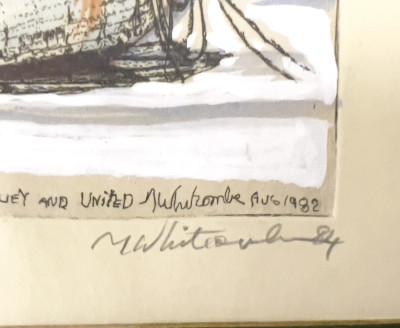 UEY AND UNITED MWhitcombe AUG 1982
MWhitcombe 84